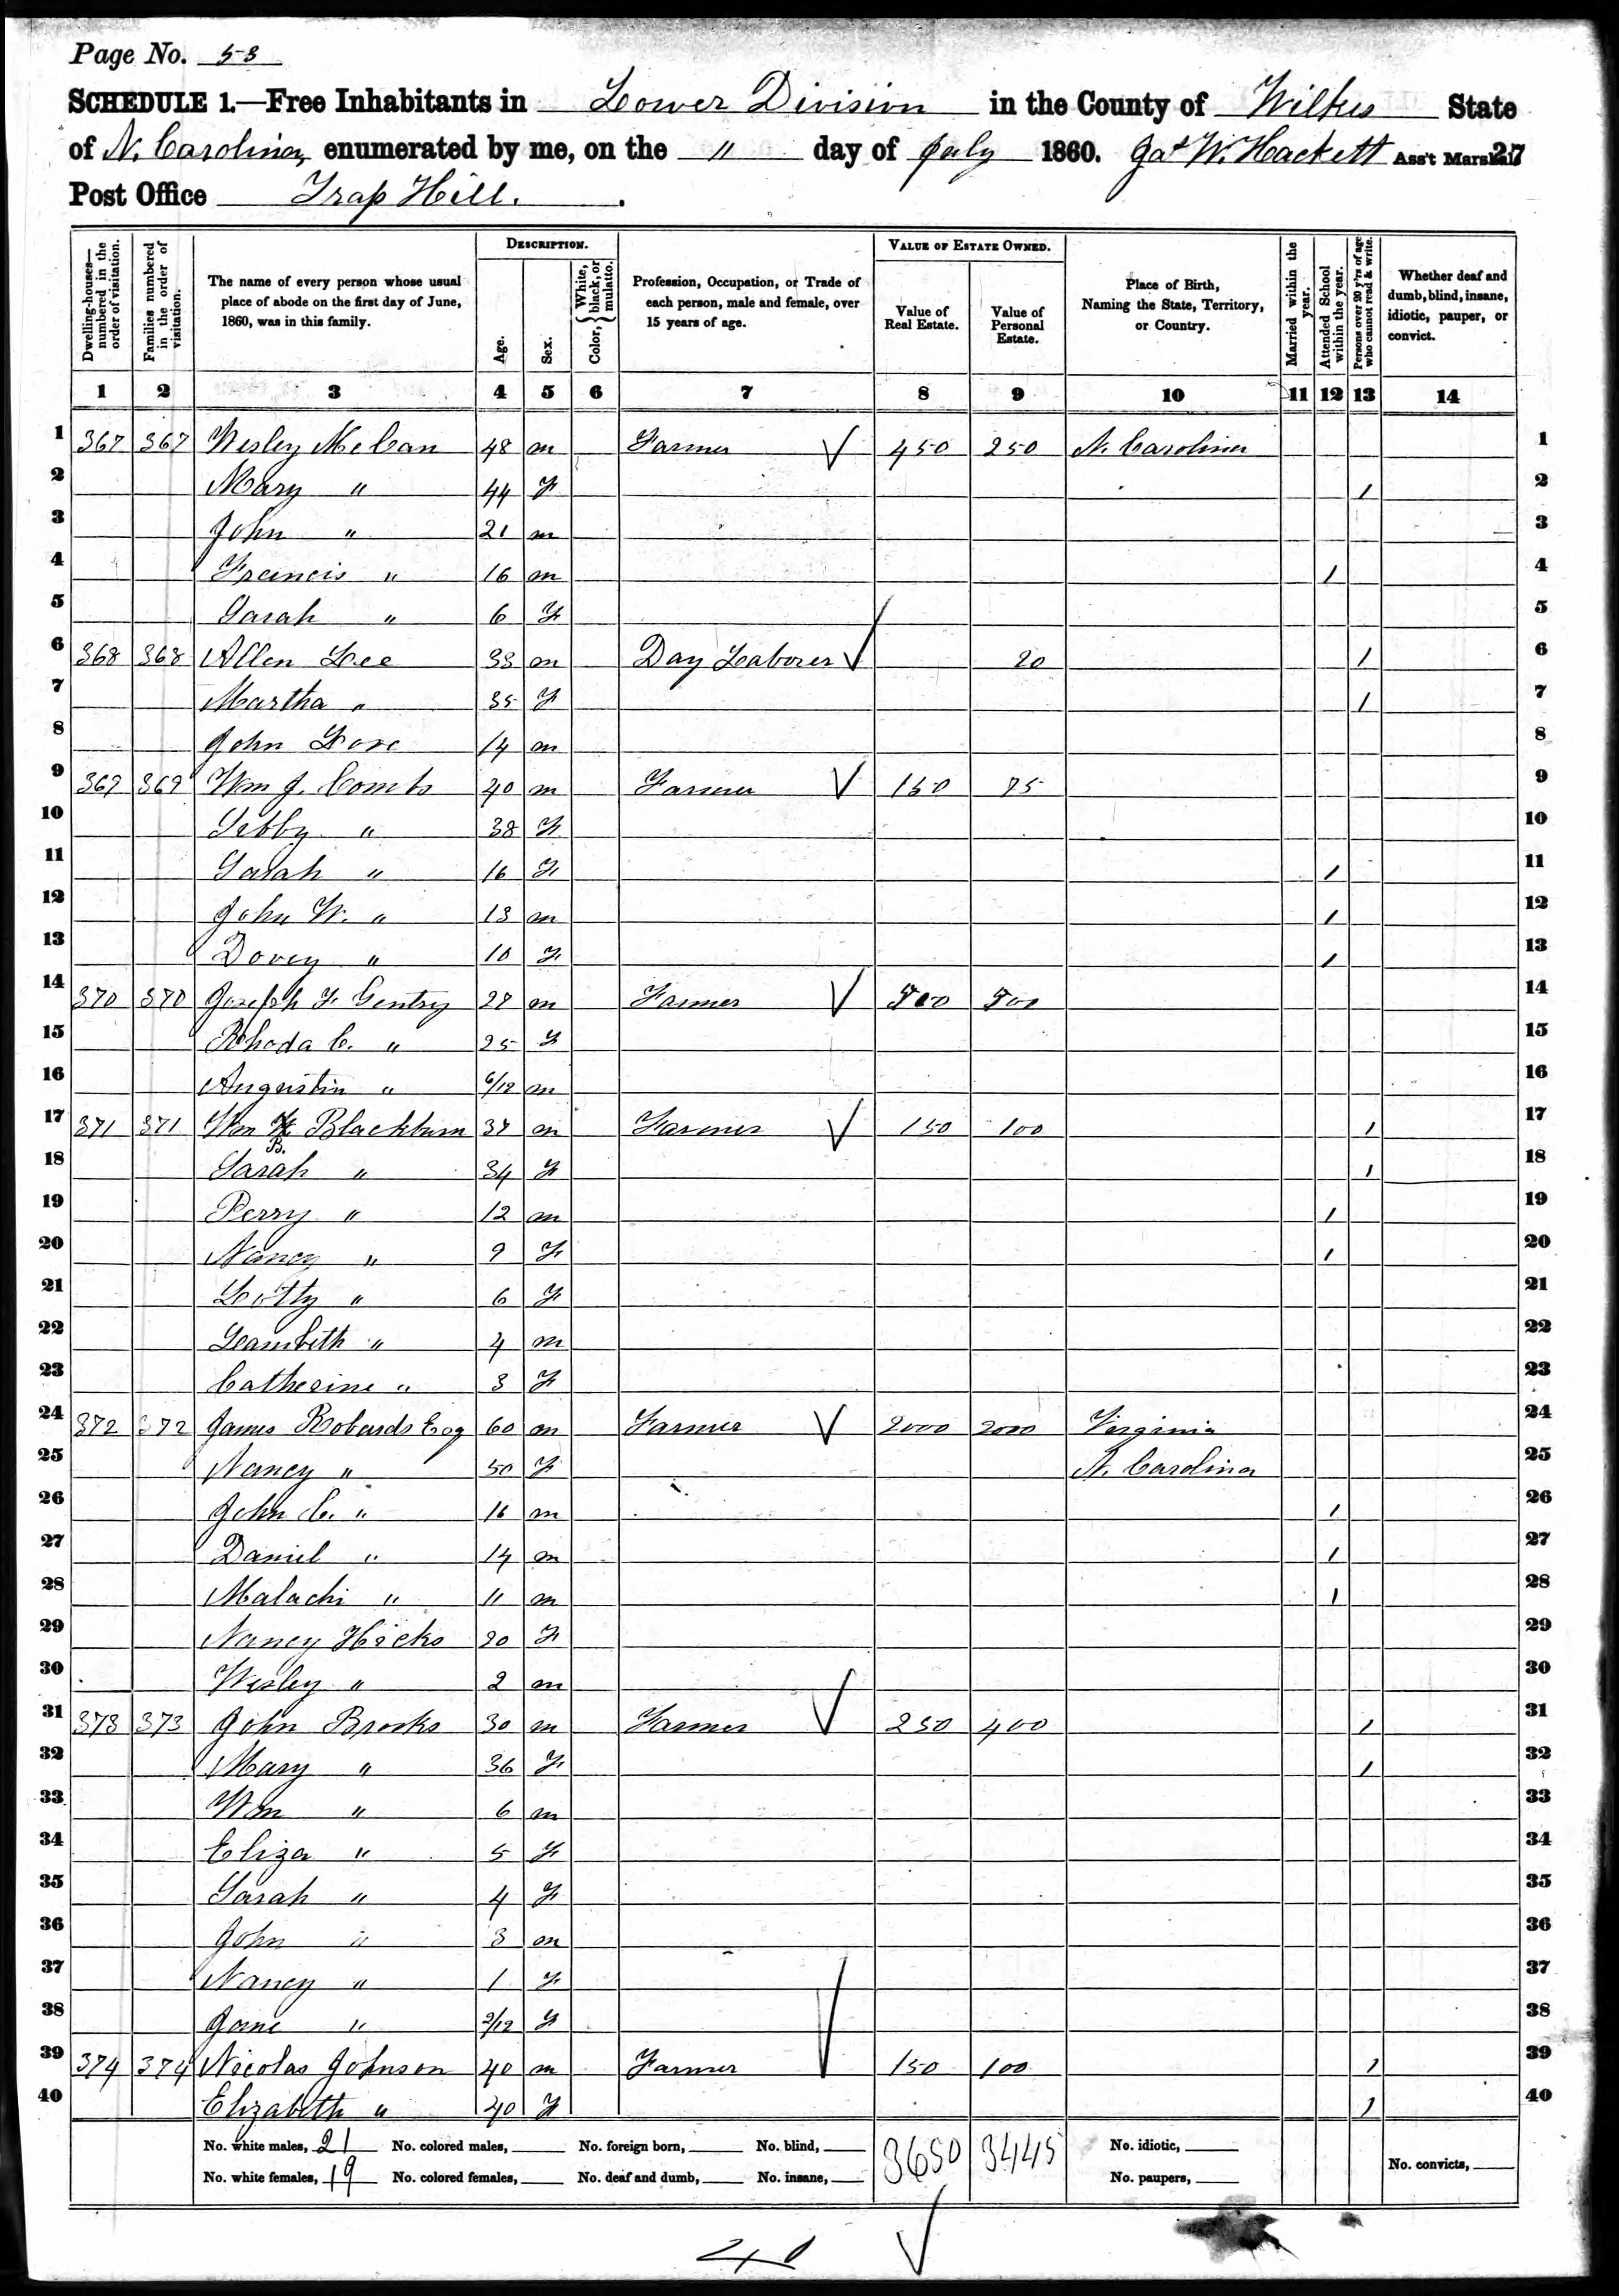 Page No. 53
SCHEDULE 1.—Free Inhabitants in Lower Division in the County of Wilkes State
of N. Carolina, enumerated by me, on the " day of July 1860. Jas W. Hackett Ass't Marshal 27
Post Office Trap Hill.
Dwelling-houses—numbered in the order of visitation.
Families numbered in the order of visitation.
The name of every person whose usual place of abode on the first day of June, 1860, was in this family.
DESCRIPTION.
Age.
Sex.
Color, { White, black, or mulatto.
Profession, Occupation, or Trade of each person, male and female, over 15 years of age.
VALUE OF ESTATE OWNED.
Value of Real Estate.
Value of Personal Estate.
Place of Birth, Naming the State, Territory, or Country.
Married within the year.
Attended School within the year.
Persons over 20 y'rs of age who cannot read & write.
Whether deaf and dumb, blind, insane, idiotic, pauper, or convict.
1 2 3 4 5 6 7 8 9 10 11 12 13 14
1 367 367 Wesley McCan 48 m Farmer 450 250 N. Carolina 1
2 Mary " 44 F 1 2
3 John " 21 m 3
4 Francis " 16 m 1 4
5 Sarah " 6 F 5
6 368 368 Allen Lee 33 m Day Laborer 20 1 6
7 Martha " 35 F 1 7
8 John 14 m 8
9 369 369 Wm J. Combs 40 m Farmer 150 75 9
10 " 38 F 10
11 Sarah " 16 F 1 11
12 John W. " 13 m 1 12
13 Dovey " 10 F 1 13
14 370 370 Joseph F. Gentry 27 m Farmer 500 500 14
15 Rhoda C. " 25 F 15
16 Augustin " 6/12 m 16
17 371 371 Wm B. Blackburn 37 m Farmer 150 100 1 17
18 Sarah " 34 F 1 18
19 Perry " 12 m 1 19
20 Nancy " 9 F 1 20
21 Lotty " 6 F 21
22 Leambeth " 4 m 22
23 Catherine " 3 F 23
24 372 372 James Robards Esq 60 m Farmer 2000 2000 Virginia 24
25 Nancy " 50 F N. Carolina 25
26 John C. " 16 m 1 26
27 Daniel " 14 m 1 27
28 Malachi " 11 m 1 28
29 Nancy Hicks 20 F 29
30 Wesley " 2 m 30
31 373 373 John Brooks 30 m Farmer 250 400 1 31
32 Mary " 36 F 1 32
33 Wm " 6 m 33
34 Eliza " 5 F 34
35 Sarah " 4 F 35
36 John " 3 m 36
37 Nancy " 1 F 37
38 Jane " 2/12 F 38
39 374 374 Nicolas Johnson 40 m Farmer 150 100 1 39
40 Elizabeth " 40 F 1 40
No. white males, 21 No. colored males, No. foreign born, No. blind, 3650 3445 No. idiotic,
No. white females, 19 No. colored females, No. deaf and dumb, No. insane, No. paupers, No. convicts,
40